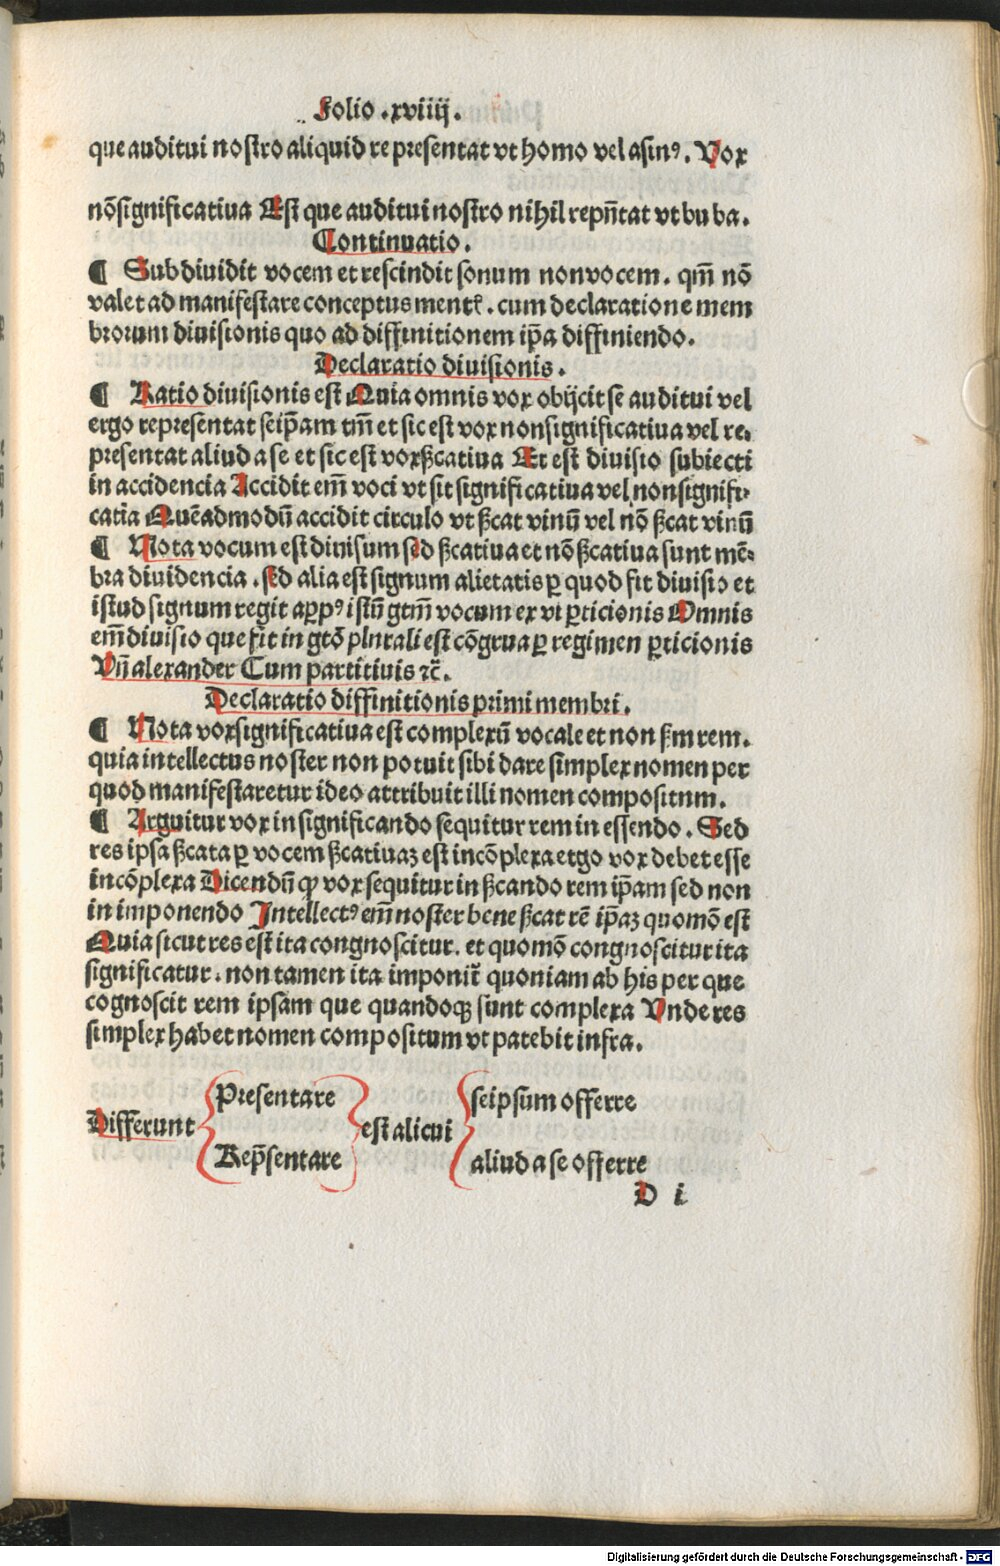 Folio .xviiij.
que auditui nostro aliquid representat vt homo vel asinꝰ. Vox
nōsignificatiua Est que auditui nostro nihil repñtat vt bu ba.
Continuatio.
¶ Subdiuidit vocem et rescindit sonum nonvocem. qm̄ nō
valet ad manifestare conceptus mentꝭ. cum declaratione mem
brorum diuisionis quo ad diffinitionem ip̄a diffiniendo.
Declaratio diuisionis.
¶ Ratio diuisionis est Quia omnis vox obijcit se auditui vel
ergo representat seip̄am tm̄ et sic est vox nonsignificatiua vel re.
presentat aliud a se et sic est voxſꝫcatiua Et est diuisio subiecti
in accidencia Accidit em̄ voci vt sit significatiua vel nonsignifi-
catia Quēadmodū accidit circulo vt ſꝫcat vinū vel nō ſꝫcat vinū
¶ Nota vocum est diuisum sed ſꝫcatiua et nōſꝫcatiua sunt mē-
bra diuidencia. sed alia est signum alietatis ꝑ quod fit diuisio et
istud signum regit aꝓpꝰ istū gtm̄ vocum ex vi ꝑticionis Omnis
em̄ diuisio que fit in gtō plurali est cōgrua ꝑ regimen ꝑticionis
Vñ alexander Cum partitiuis ⁊c̄.
Declaratio diffinitionis primi membri.
¶ Nota voxsignificatiua est complexū vocale et non ſm rem.
quia intellectus noster non potuit sibi dare simplex nomen per
quod manifestaretur ideo attribuit illi nomen compositum.
¶ Arguitur vox in significando sequitur rem in essendo. Sed
res ipsa ſꝫcata ꝑ vocem ſꝫcatiuaꝫ est incōplexa ergo vox debet esse
incōplexa Dicendū ꝙ vox sequitur in ſꝫcando rem ip̄am sed non
in imponendo Intellectꝰ em̄ noster bene ſꝫcat rē ip̄aꝫ quomō est
Quia sicut res est ita congnoscitur. et quomō congnoscitur ita
significatur. non tamen ita imponit̄ quoniam ab his per que
cognoscit rem ipsam que quandoqꝫ sunt complexa Vnde res
simplex habet nomen compositum vt patebit infra.
Presentare seipsum offerre
Differunt est alicui
Rep̄sentare aliud a se offerre
D i
Digitalisierung gefördert durch die Deutsche Forschungsgemeinschaft - DFG